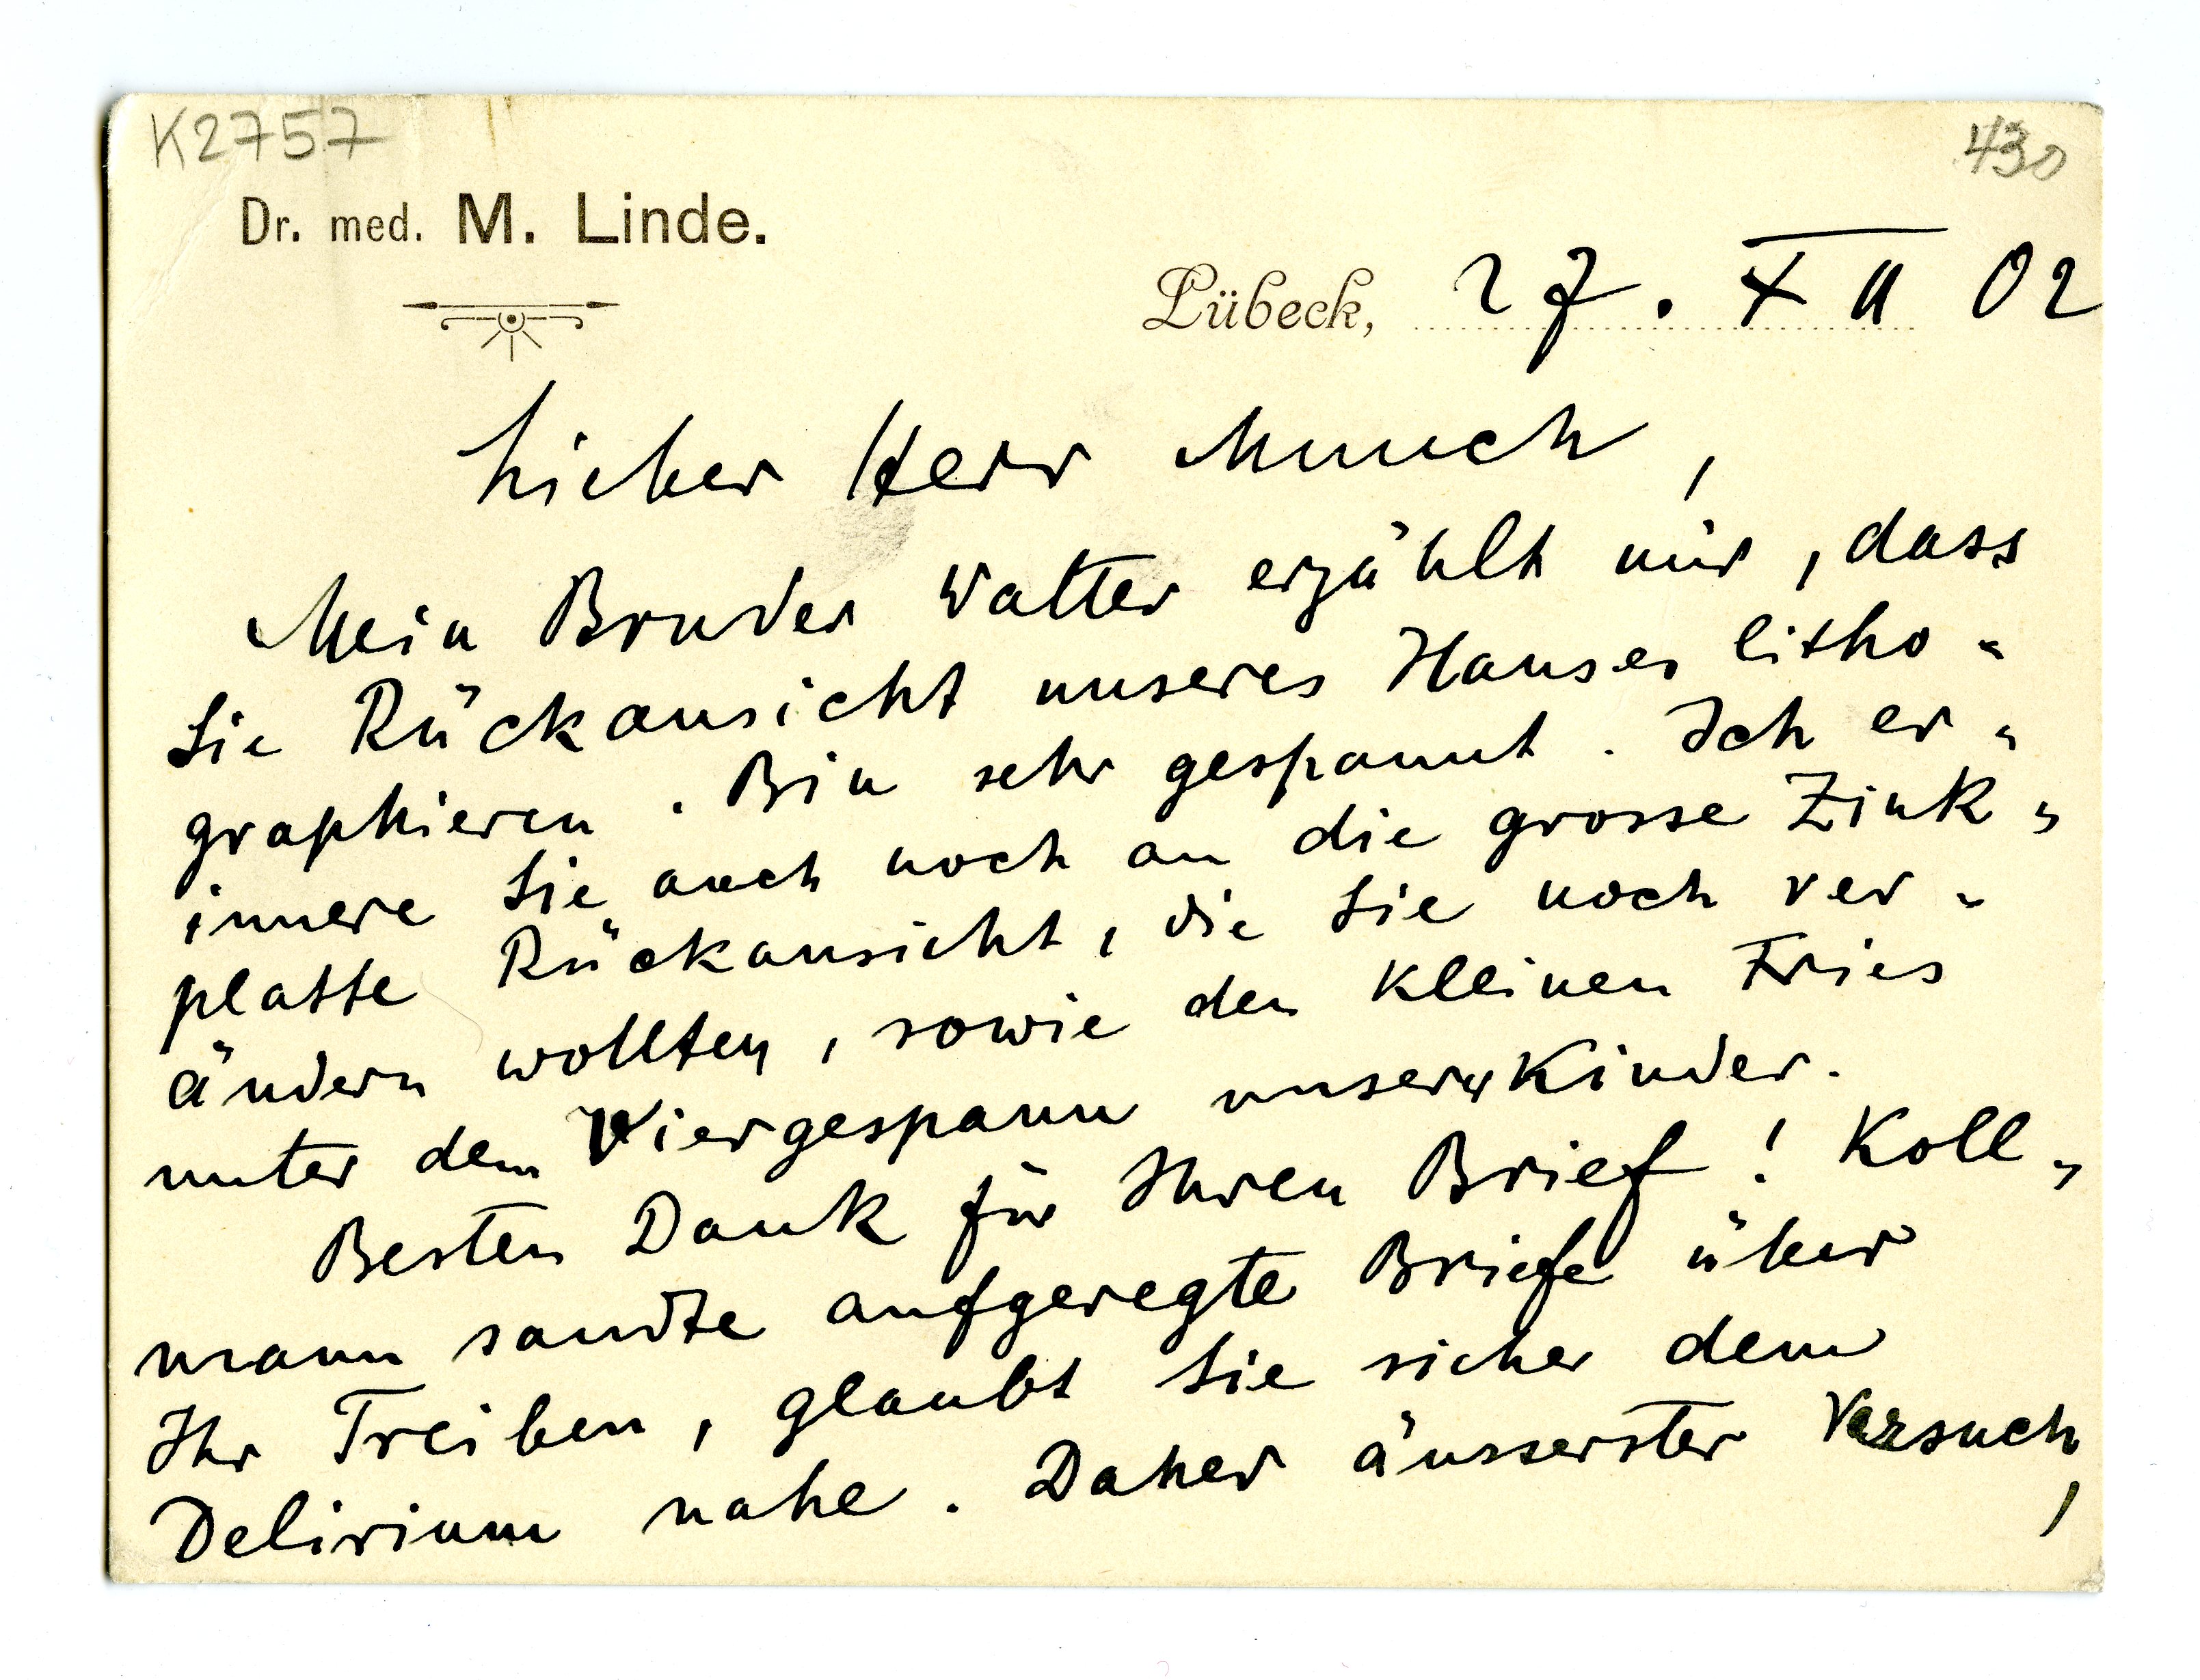 K2757
430
Dr. med. M. Linde.
Lübeck, 27. XII 02
Lieber Herr Munch,
Mein Bruder Walter erzählt mir, dass
Sie Rückansicht unseres Hauses litho-
graphieren. Bin sehr gespannt. Ich er-
innere Sie auch noch an die grosse Zink-
platte Rückansicht, die Sie noch ver-
ändern wollten, sowie den kleinen Fries
unter dem Viergespann unserer Kinder.
Besten Dank für Ihren Brief! Koll-
mann sandte aufgeregte Briefe über
Ihr Treiben, glaubt Sie sicher dem
Delirium nahe. Daher äusserster Versuch,